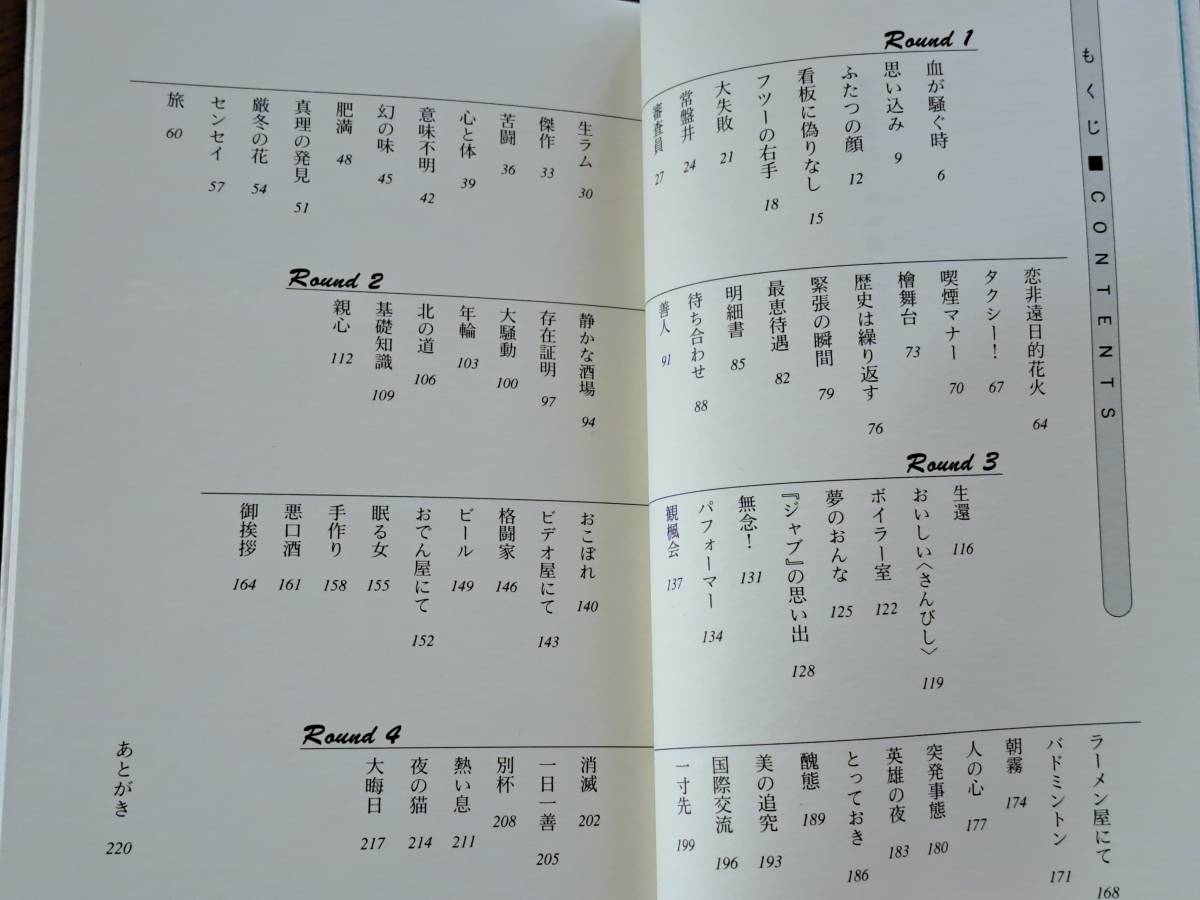 もくじ■CONTENTS
Round 1
血が騒ぐ時 6
思い込み 9
ふたつの顔 12
看板に偽りなし 15
フツーの右手 18
大失敗 21
常盤井 24
審査員 27
生ラム 30
傑作 33
苦闘 36
心と体 39
意味不明 42
幻の味 45
肥満 48
真理の発見 51
厳冬の花 54
センセイ 57
旅 60
Round 2
恋非遠日的花火 64
タクシー! 67
喫煙マナー 70
檜舞台 73
歴史は繰り返す 76
緊張の瞬間 79
最恵待遇 82
明細書 85
待ち合わせ 88
善人 91
静かな酒場 94
存在証明 97
大騒動 100
年輪 103
北の道 106
基礎知識 109
親心 112
Round 3
生還 116
おいしい〈さんびし〉 119
ボイラー室 122
夢のおんな 125
『ジャブ』の思い出 128
無念! 131
パフォーマー 134
観楓会 137
おこぼれ 140
ビデオ屋にて 143
格闘家 146
ビール 149
おでん屋にて 152
眠る女 155
手作り 158
悪口酒 161
御挨拶 164
Round 4
ラーメン屋にて 168
バドミントン 171
朝霧 174
人の心 177
突発事態 180
英雄の夜 183
とっておき 186
醜態 189
美の追究 193
国際交流 196
一寸先 199
消滅 202
一日一善 205
別杯 208
熱い息 211
夜の猫 214
大晦日 217
あとがき 220